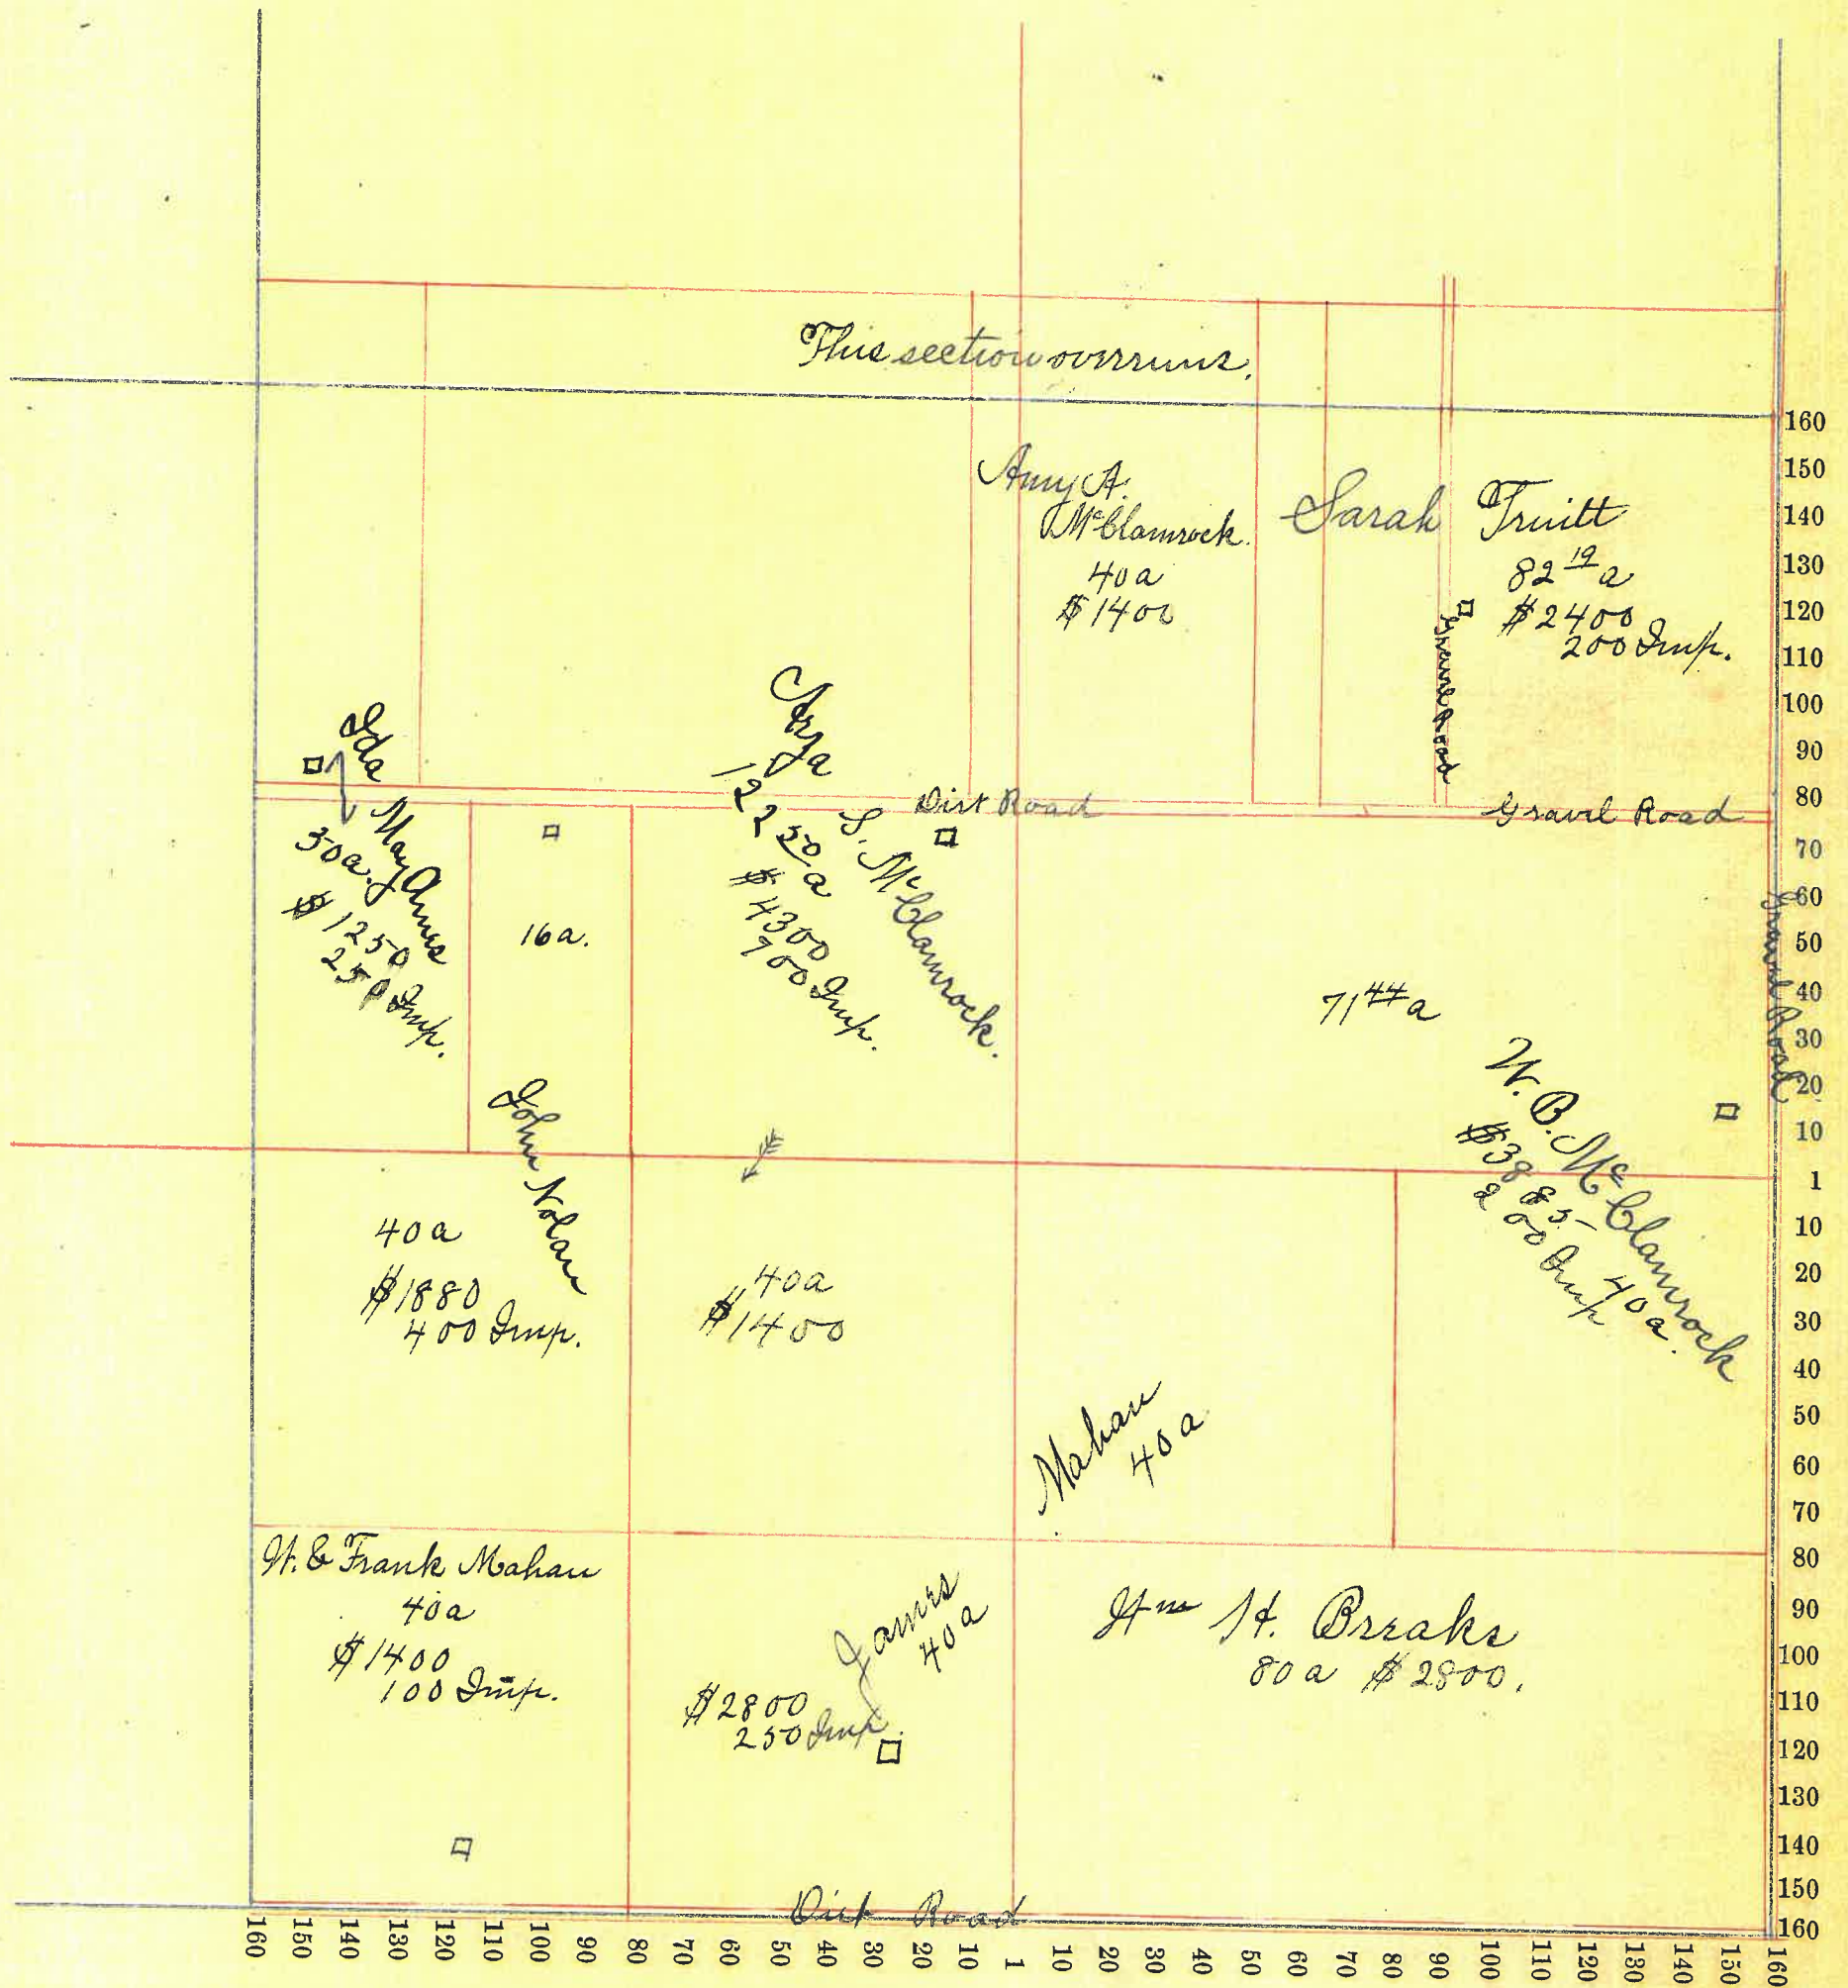 This section overruns.
Amy A.
McClamrock.
40 a
$1400
Sarah Truitt
82 19 a
$2400
200 Imp.
Gravel Road
Ida May Ames
30 a.
$1250
250 Imp.
16 a.
Arza S. McClamrock.
122 50 a
$4300
700 Imp.
Dirt Road
Gravel Road
Gravel Road
71 44 a
W. B. McClamrock
$3885
200 Imp
40 a.
John Nolan
40 a
$1880
400 Imp.
40 a
$1400
Mahan
40 a
W. & Frank Mahan
40 a
$1400
100 Imp.
James
40 a
$2800
250 Imp.
Wm H. Breaks
80 a $2800.
Dirt Road
160
150
140
130
120
110
100
90
80
70
60
50
40
30
20
10
1
10
20
30
40
50
60
70
80
90
100
110
120
130
140
150
160
160 150 140 130 120 110 100 90 80 70 60 50 40 30 20 10 1 10 20 30 40 50 60 70 80 90 100 110 120 130 140 150 160